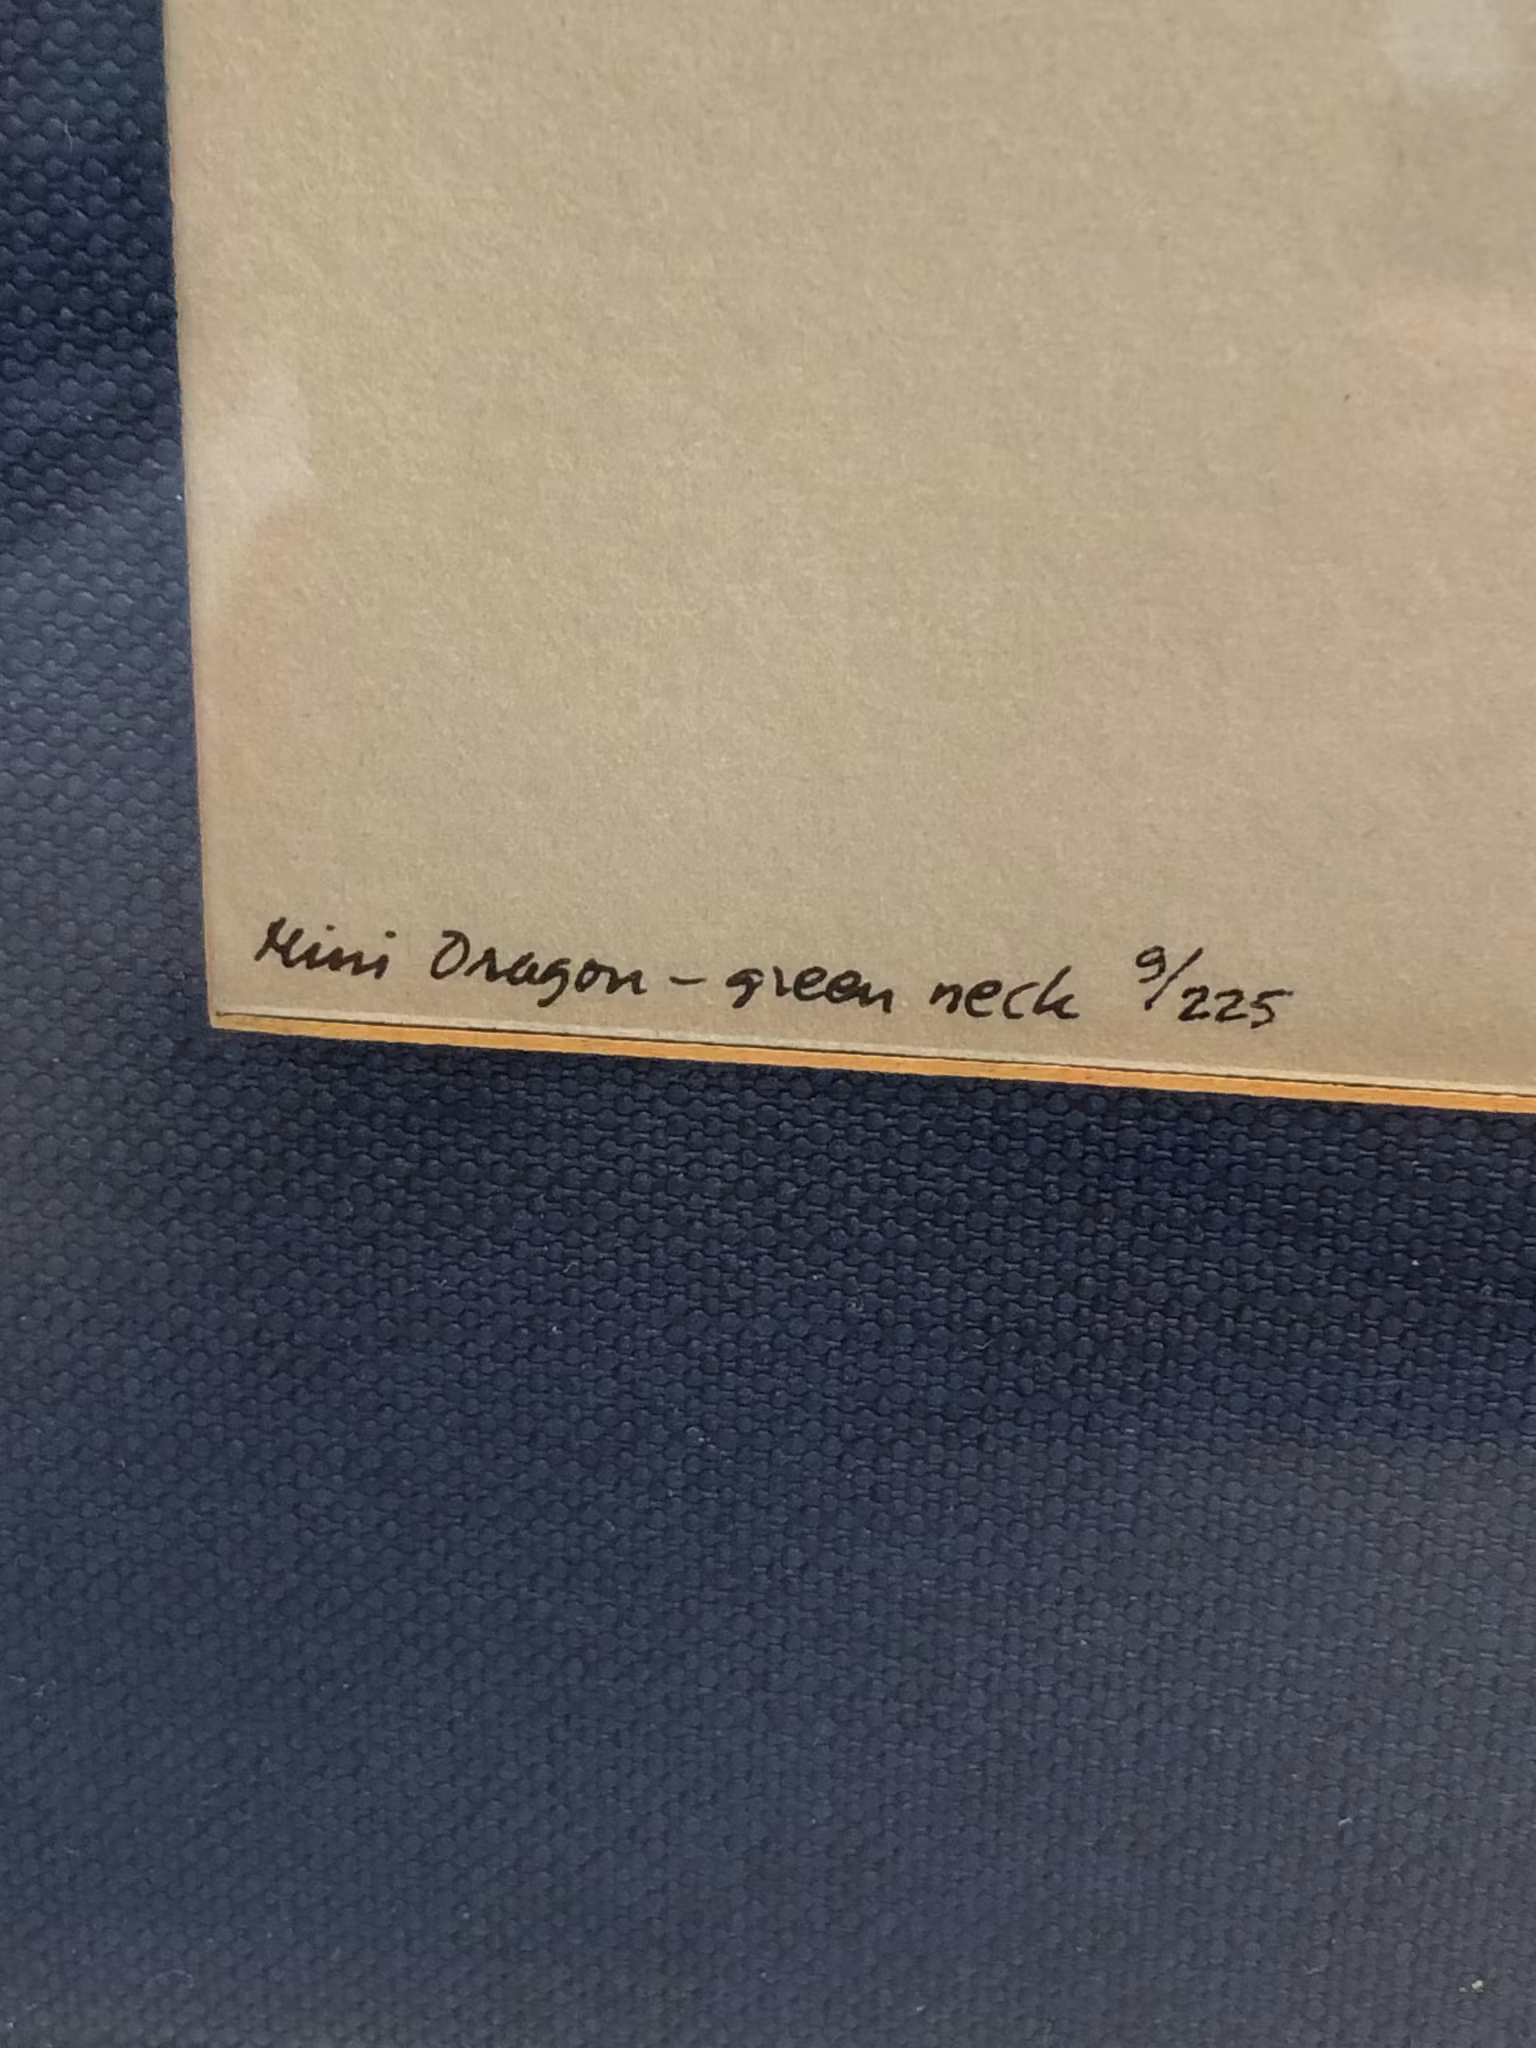 Mini Dragon - green neck 9/225